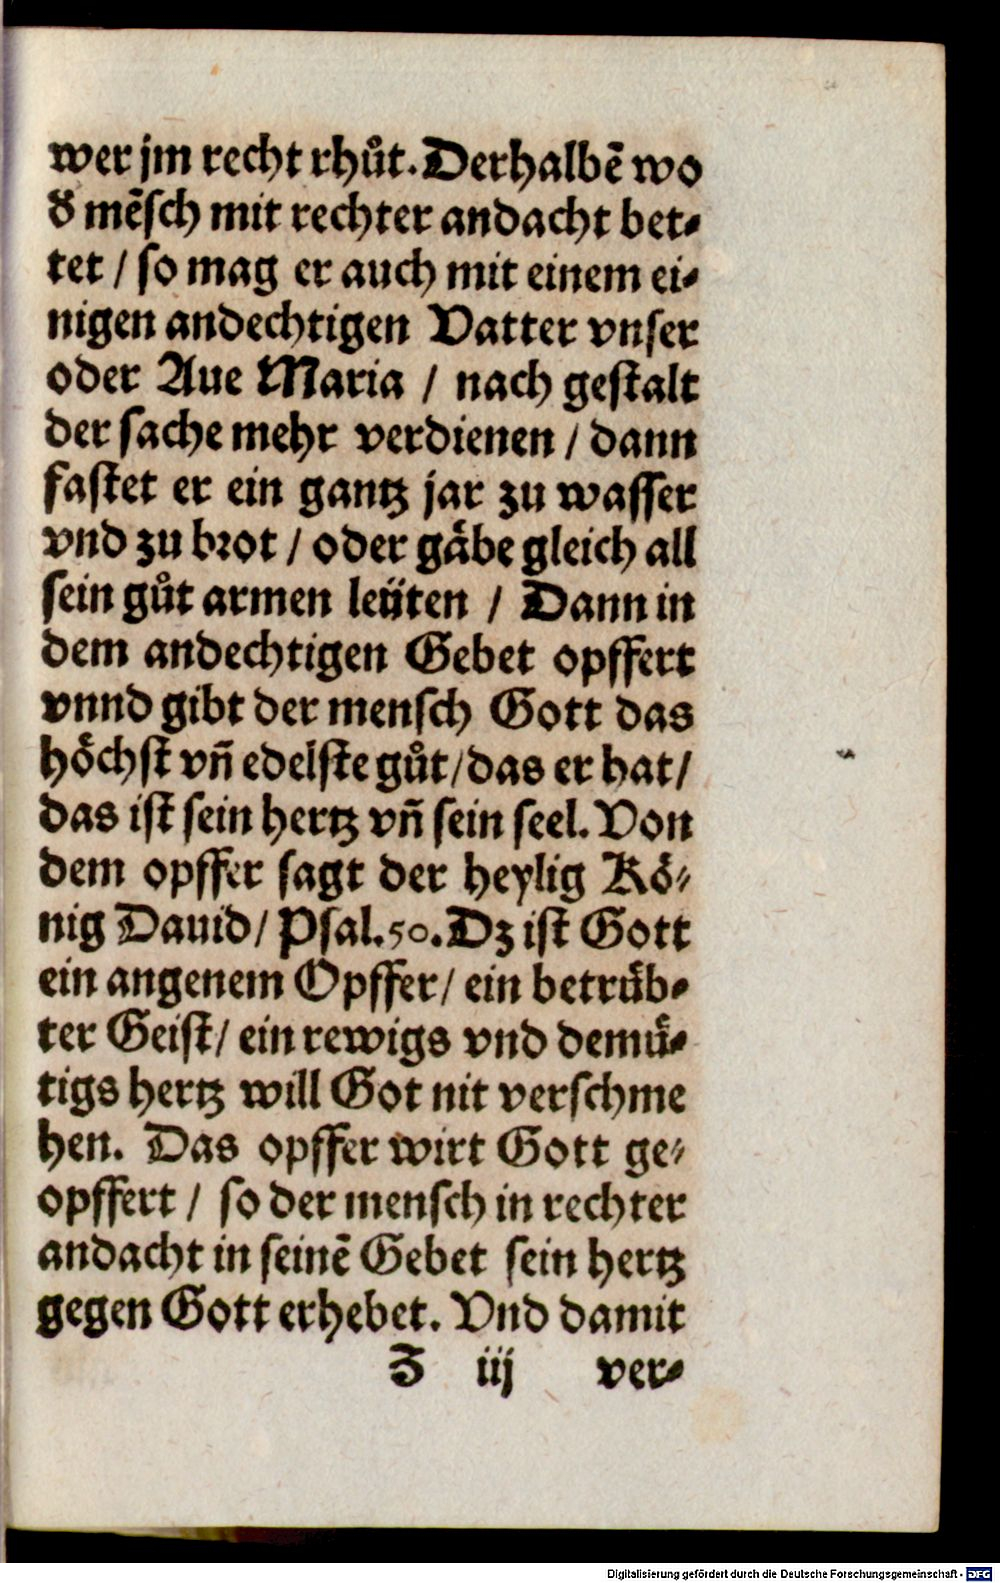 wer jm recht rhuͦt. Derhalbẽ wo
d' mẽsch mit rechter andacht bet⸗
tet / so mag er auch mit einem ei⸗
nigen andechtigen Vatter vnser
oder Aue Maria / nach gestalt
der sache mehr verdienen / dann
fastet er ein gantz jar zu wasser
vnd zu brot / oder gaͤbe gleich all
sein guͦt armen leüten / Dann in
dem andechtigen Gebet opffert
vnnd gibt der mensch Gott das
hoͤchst vñ edelste guͦt / das er hat /
das ist sein hertz vñ sein seel. Von
dem opffer sagt der heylig Koͤ⸗
nig Dauid / Psal. 50. Dz ist Gott
ein angenem Opffer / ein betruͤb⸗
ter Geist / ein rewigs vnd demuͤ⸗
tigs hertz will Got nit verschme
hen. Das opffer wirt Gott ge⸗
opffert / so der mensch in rechter
andacht in seinẽ Gebet sein hertz
gegen Gott erhebet. Vnd damit
Z iij ver⸗
Digitalisierung gefördert durch die Deutsche Forschungsgemeinschaft - DFG